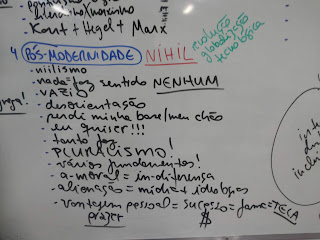 Kant + Hegel + Marx
4 PÓS-MODERNIDADE NIHIL
evolução
globalização
tecnológica
- niilismo
- nada faz sentido NENHUM
- VAZIO
- desorientação
- perdi minha base/meu chão
- eu quiser!!!
- tanto faz
- PLURALISMO!
- vários fundamentos!
- a-moral = in-diferença
- alienação = mídia e ideologias
- vantagem pessoal = sucesso = fama = TECA
prazer $